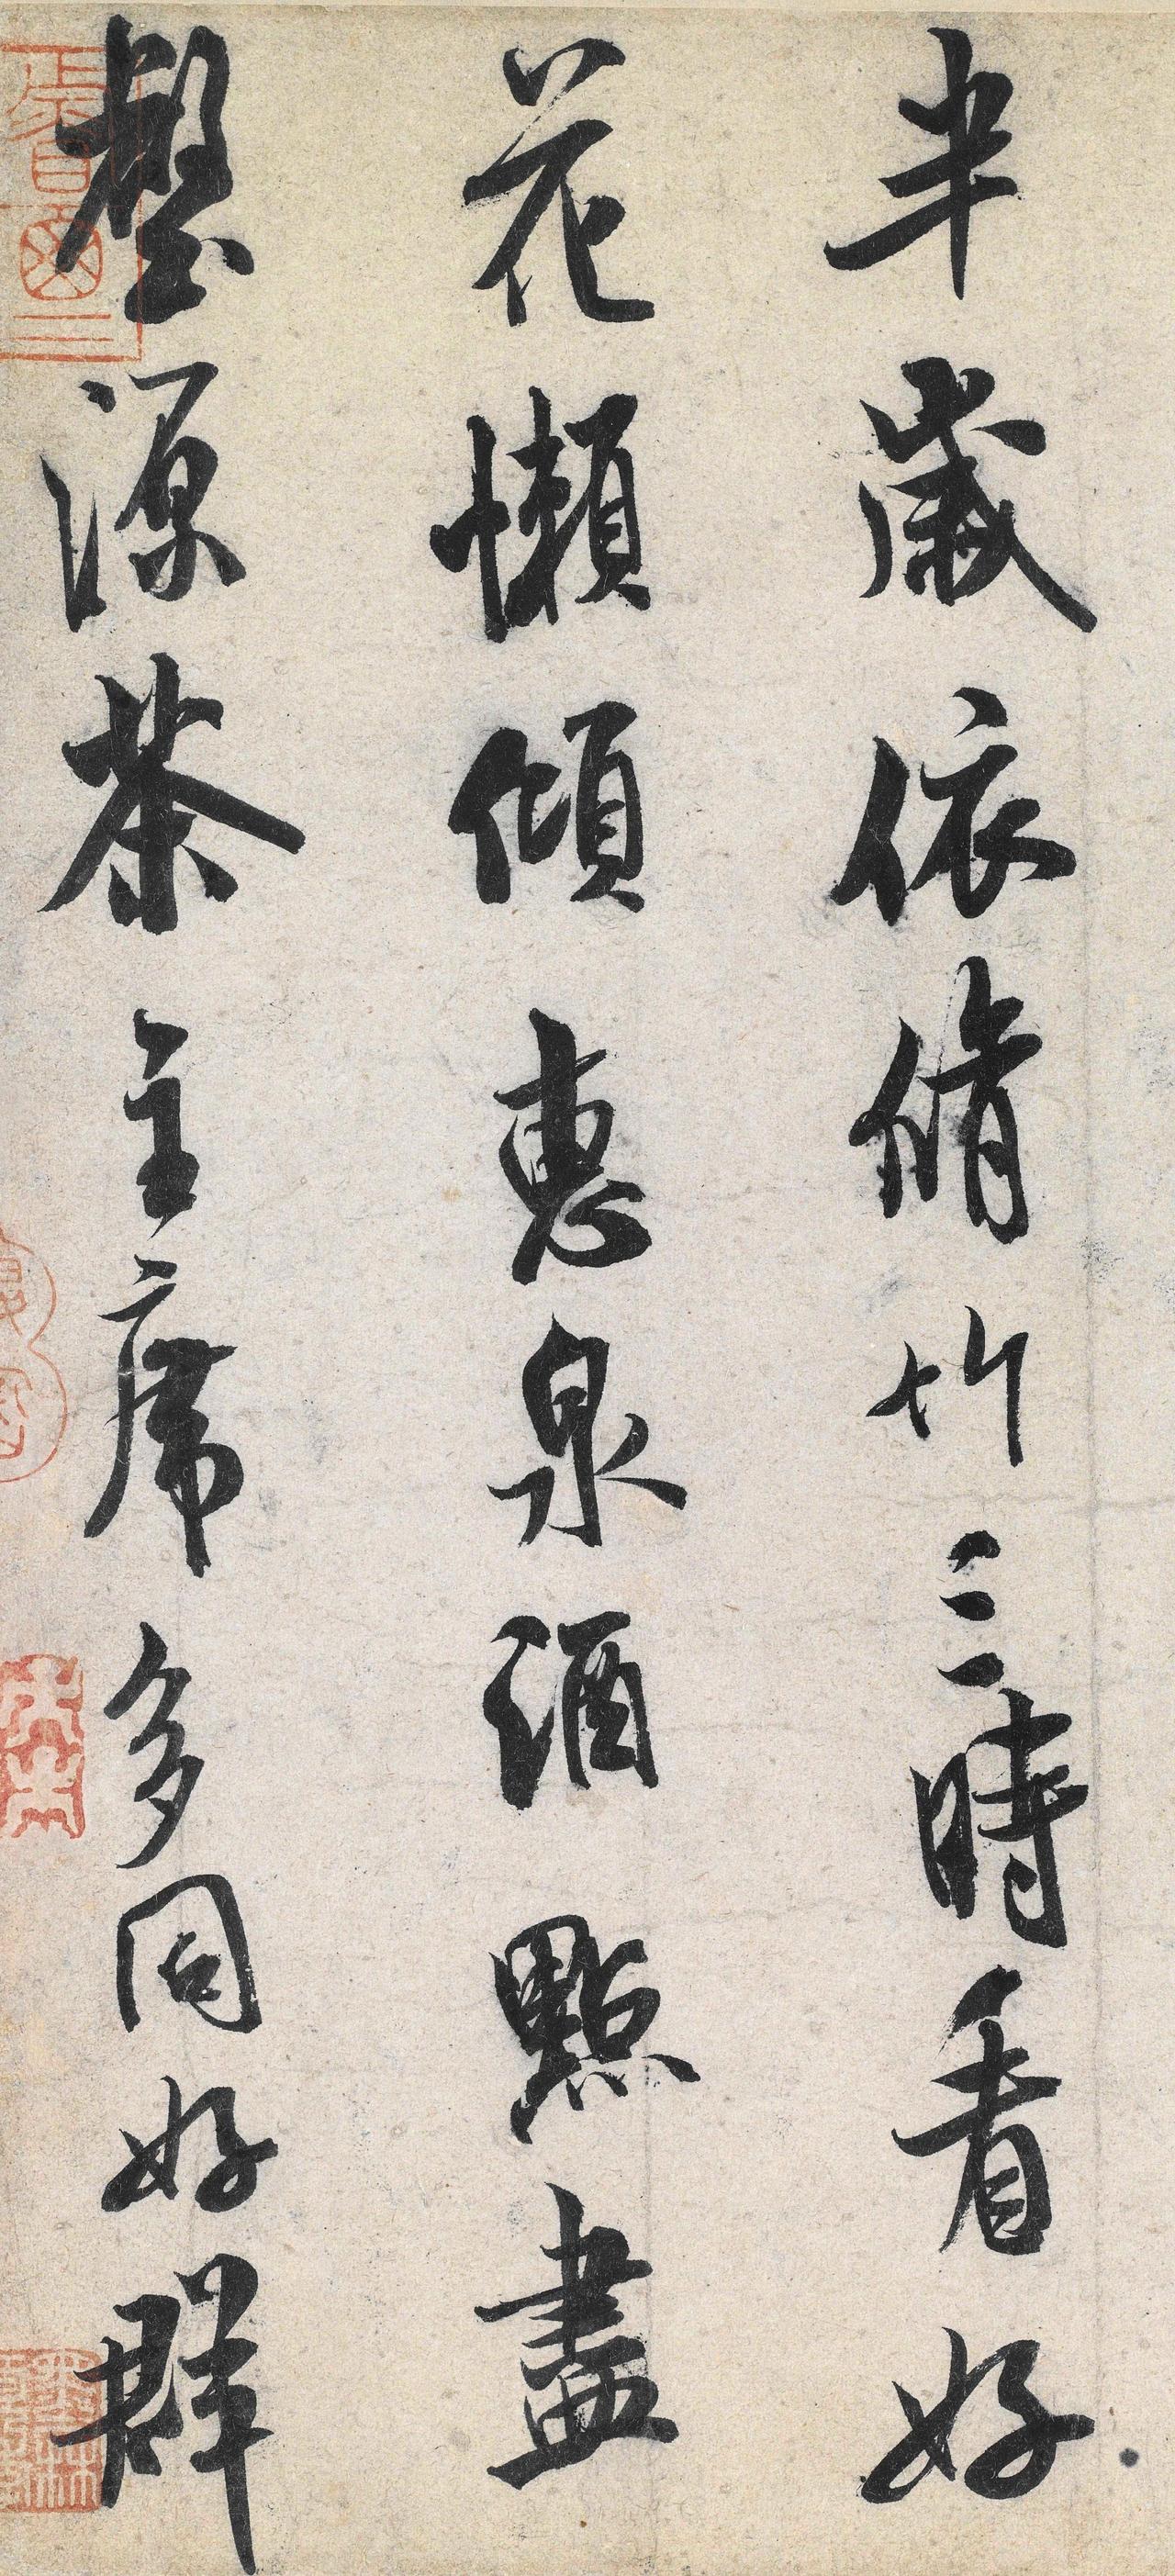 半歲依脩竹三時看好
花懶傾惠泉酒點盡
壑源茶主席多同好群